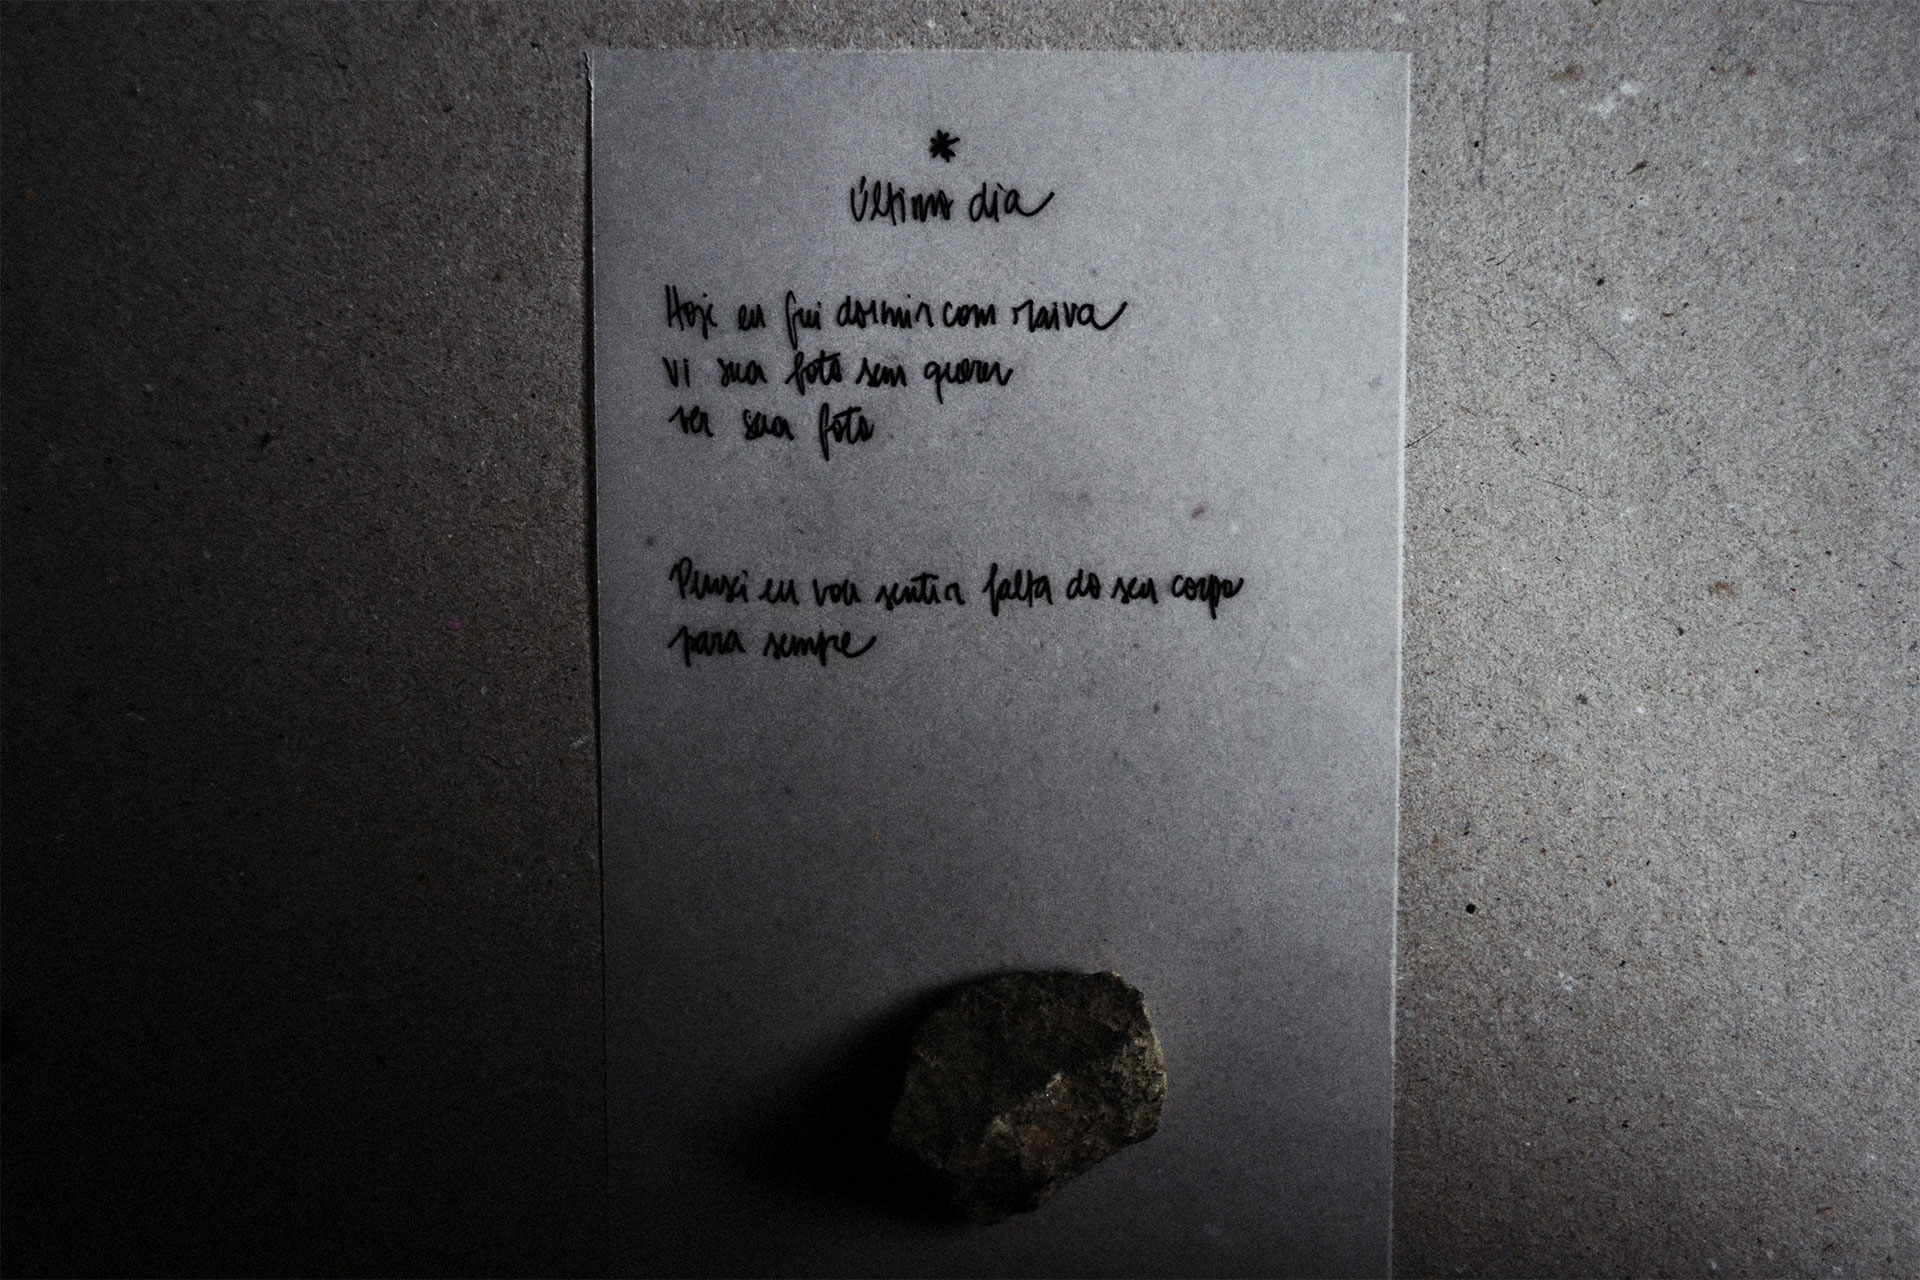 *
Último dia
Hoje eu fui dormir com raiva
vi sua foto sem querer
ver sua foto
Pensei eu vou sentir falta do seu corpo
para sempre